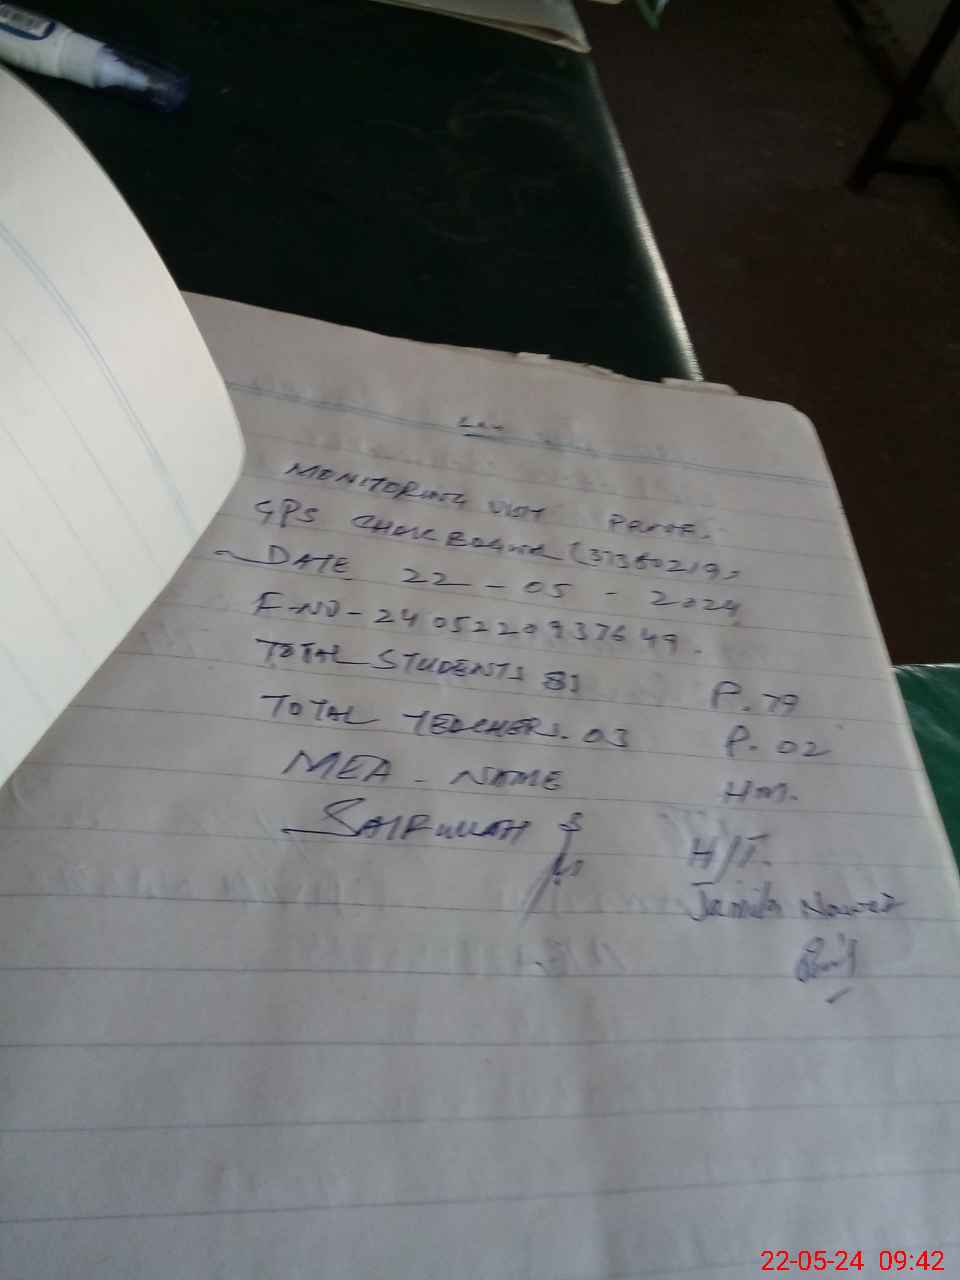 MONITORING VISIT PROOF.
GPS CHAK (37360219)
DATE 22 - 05 - 2024
F-NO - 24052209937649.
TOTAL STUDENTS 81 P. 79
TOTAL TEACHERS. 03 P. 02
MEA - NAME HM.
SAIFULLAH H/T.
Jamila
22-05-24 09:42